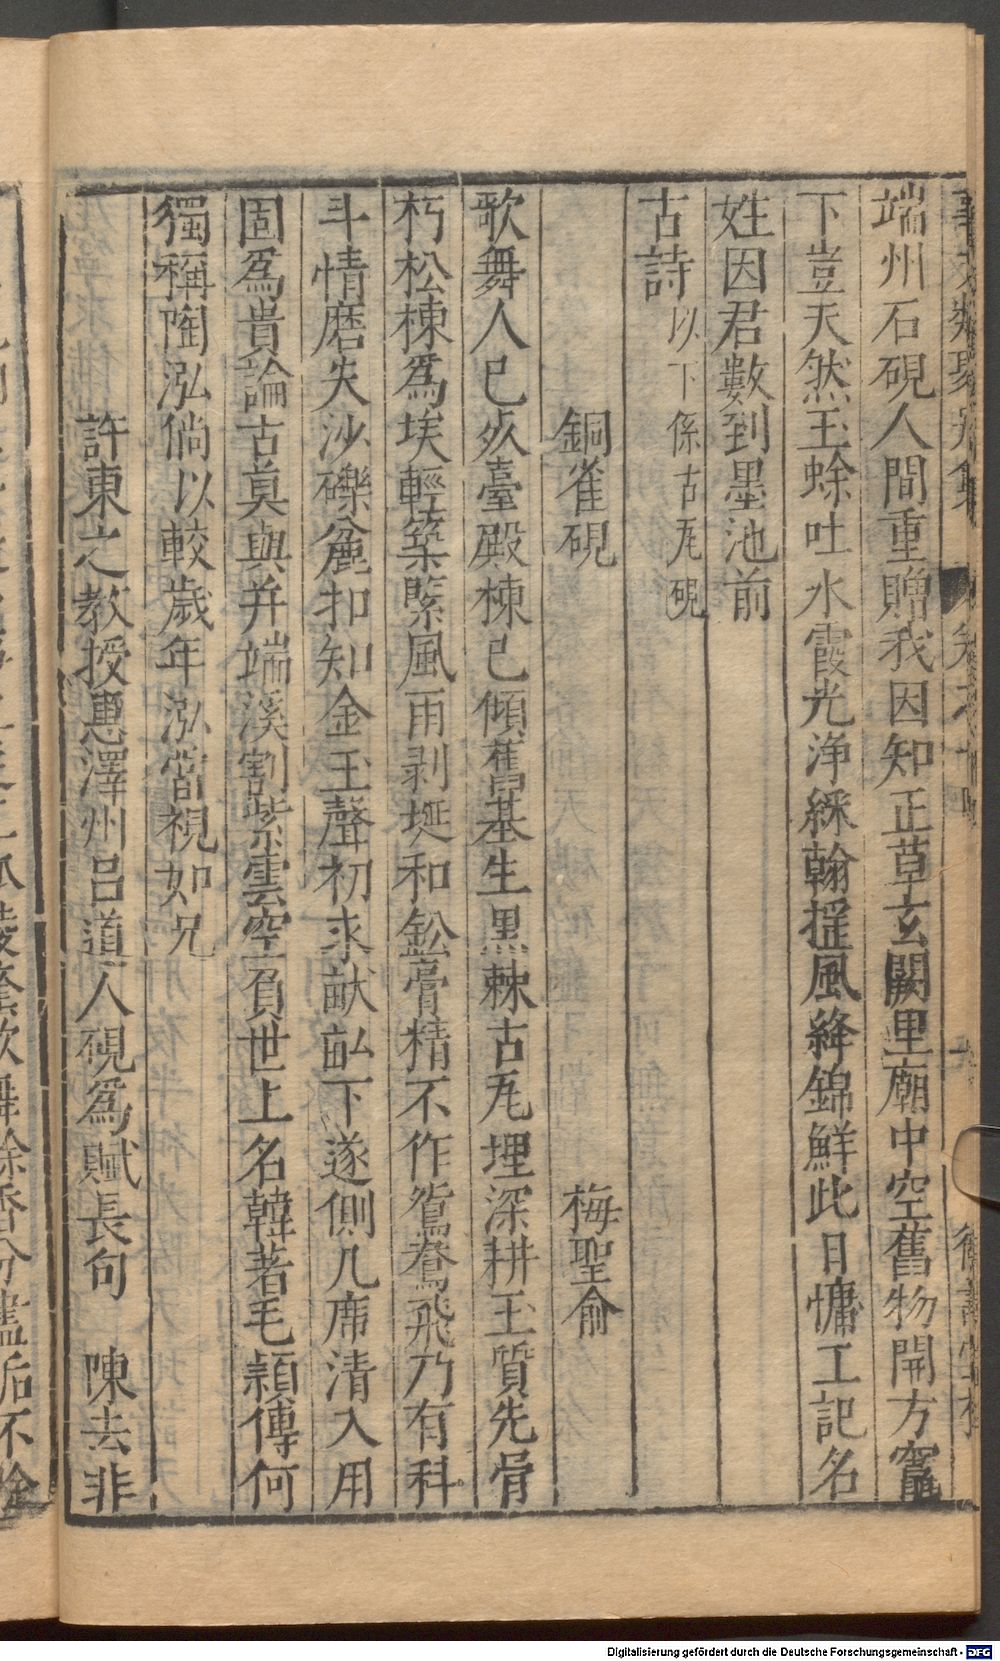 端州石硯人間重贈我因知正草玄闕里廟中空舊物開方竈
下豈天然玉蜍吐水霞光浄綵翰揺風絳錦鮮此日慵工記名
姓因君數到墨池前
古詩 以下係古瓦硯
銅雀硯 梅聖俞
歌舞人已歿臺殿棟已傾舊基生黒棘古瓦埋深耕玉質先骨
朽松棟為埃輕築緊風雨剥埏和鉛膏精不作鴛鴦飛乃有科
斗情磨失沙礫麄扣知金玉聲初求畎畝下遂側几席清入用
固為貴論古莫與并端溪割紫雲空負世上名韓著毛穎傳何
獨稱陶泓倘以較歲年泓當視如兄
許東之教授惠澤州呂道人硯為賦長句 陳去非
Digitalisierung gefördert durch die Deutsche Forschungsgemeinschaft - DFG